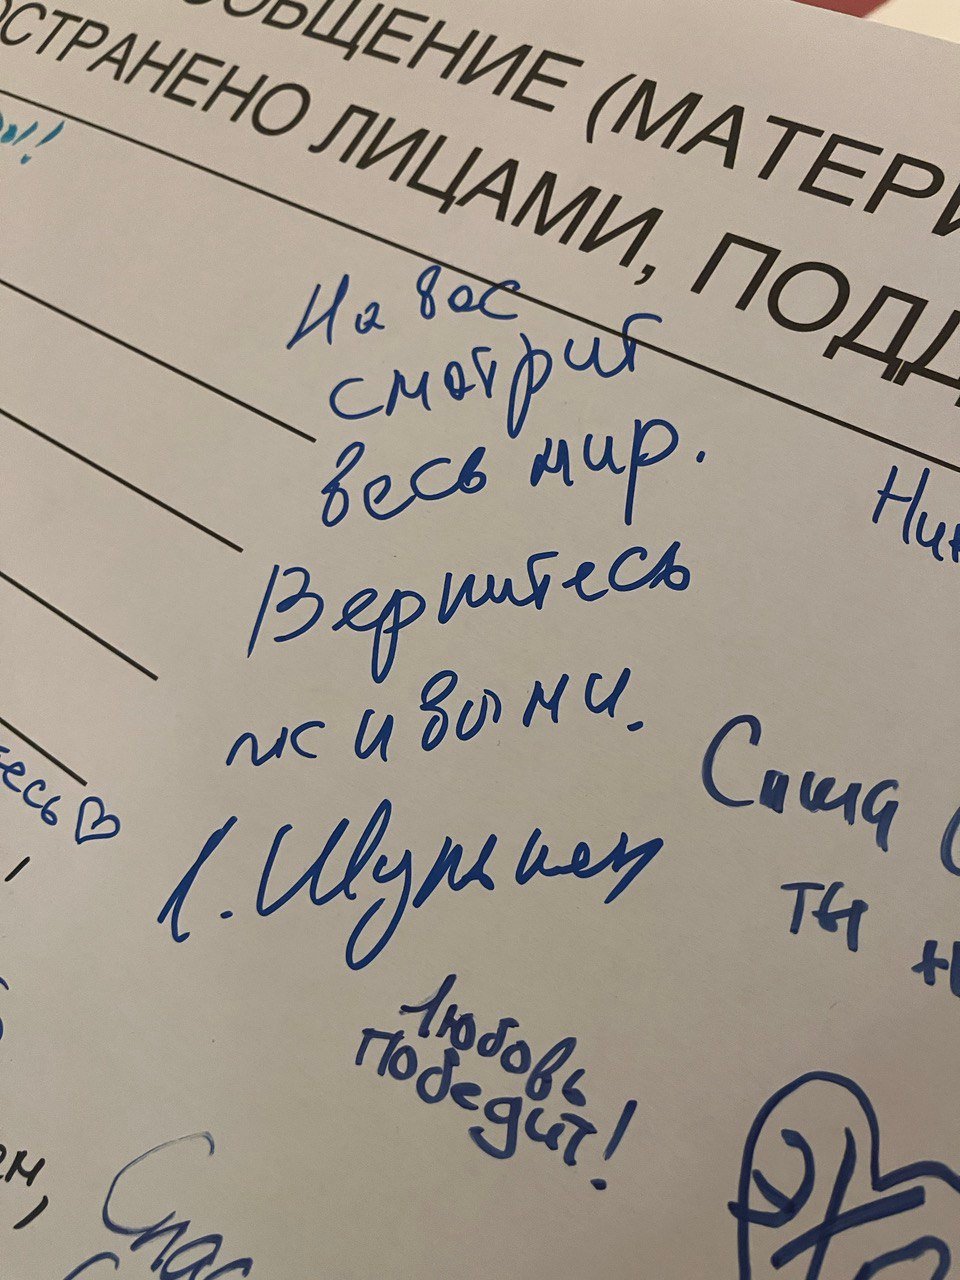 ОБЩЕНИЕ (МАТЕРИ
ОСТРАНЕНО ЛИЦАМИ, ПОДД
На вас
смотрит
весь мир.
Вернитесь
живыми.
Нин
есь
Саша
ты
Любовь
победит!
ем,
Спас